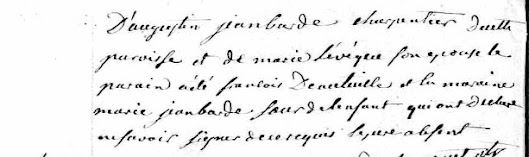 D'augustin jeanbarde charpentier de cette
paroisse et de marie lévêque son epouse le
parain a été francois Deauville et la maraine
marie jeanbarde soeur de lenfant qui ont declaré
ne savoir signer de ce requis le pere absent